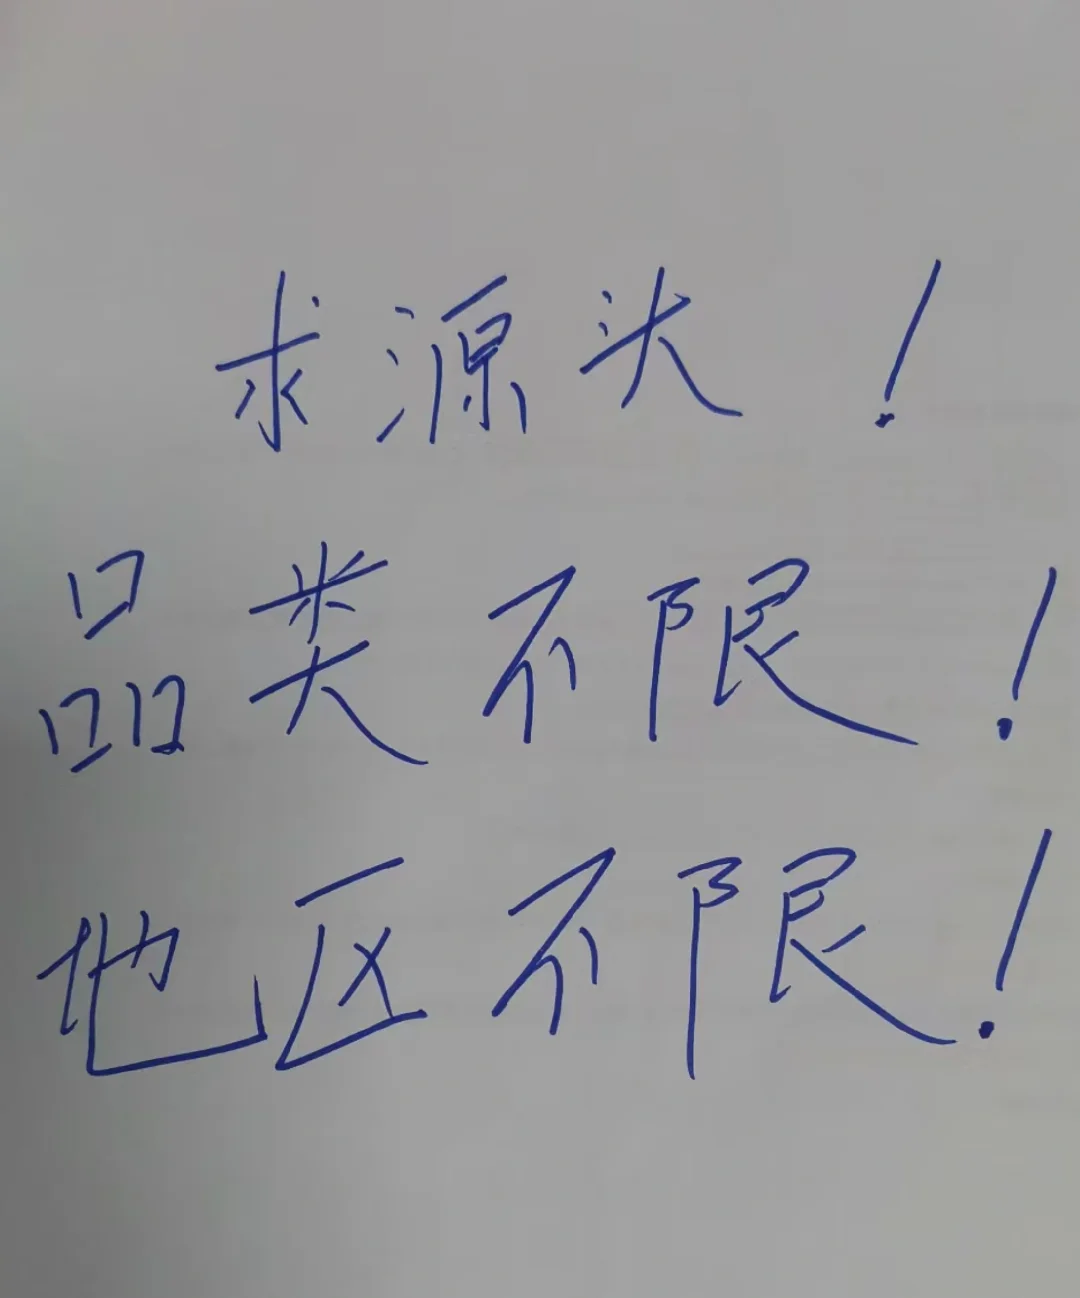 求源头！
品类不限！
地区不限！